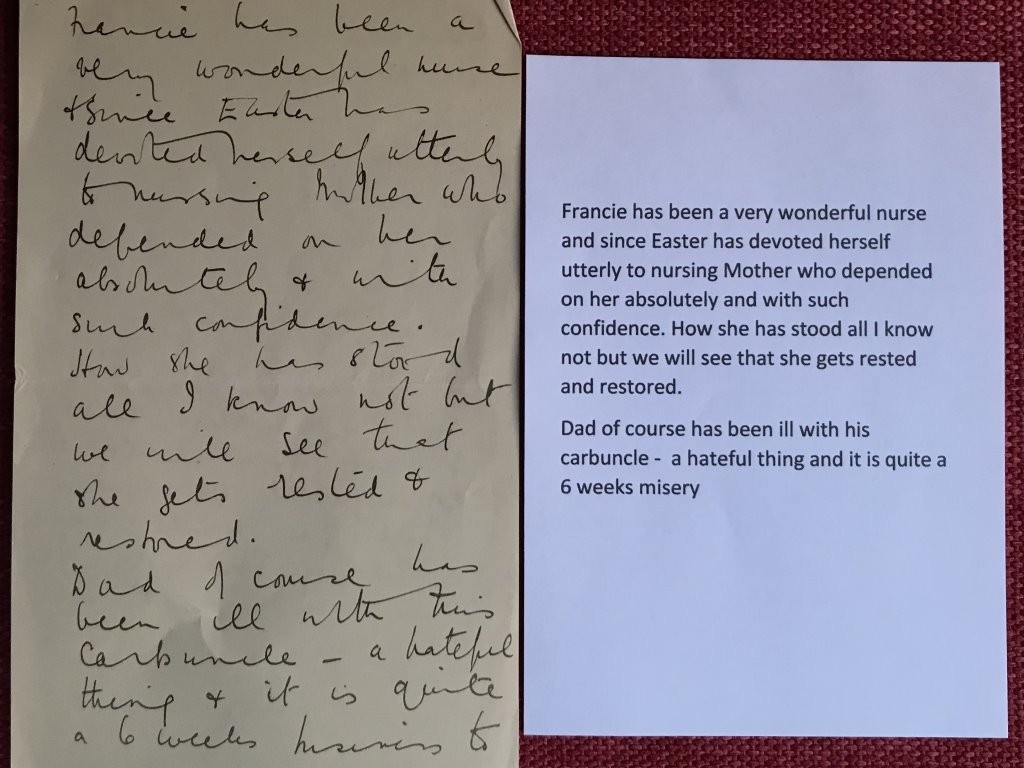 Francie has been a
very wonderful nurse
& since Easter has
devoted herself utterly
to nursing Mother who
depended on her
absolutely & with
such confidence.
How she has stood
all I know not but
we will see that
she gets rested &
restored.
Dad of course has
been ill with this
Carbuncle – a hateful
thing & it is quite
a 6 weeks business to
Francie has been a very wonderful nurse
and since Easter has devoted herself
utterly to nursing Mother who depended
on her absolutely and with such
confidence. How she has stood all I know
not but we will see that she gets rested
and restored.
Dad of course has been ill with his
carbuncle - a hateful thing and it is quite a
6 weeks misery